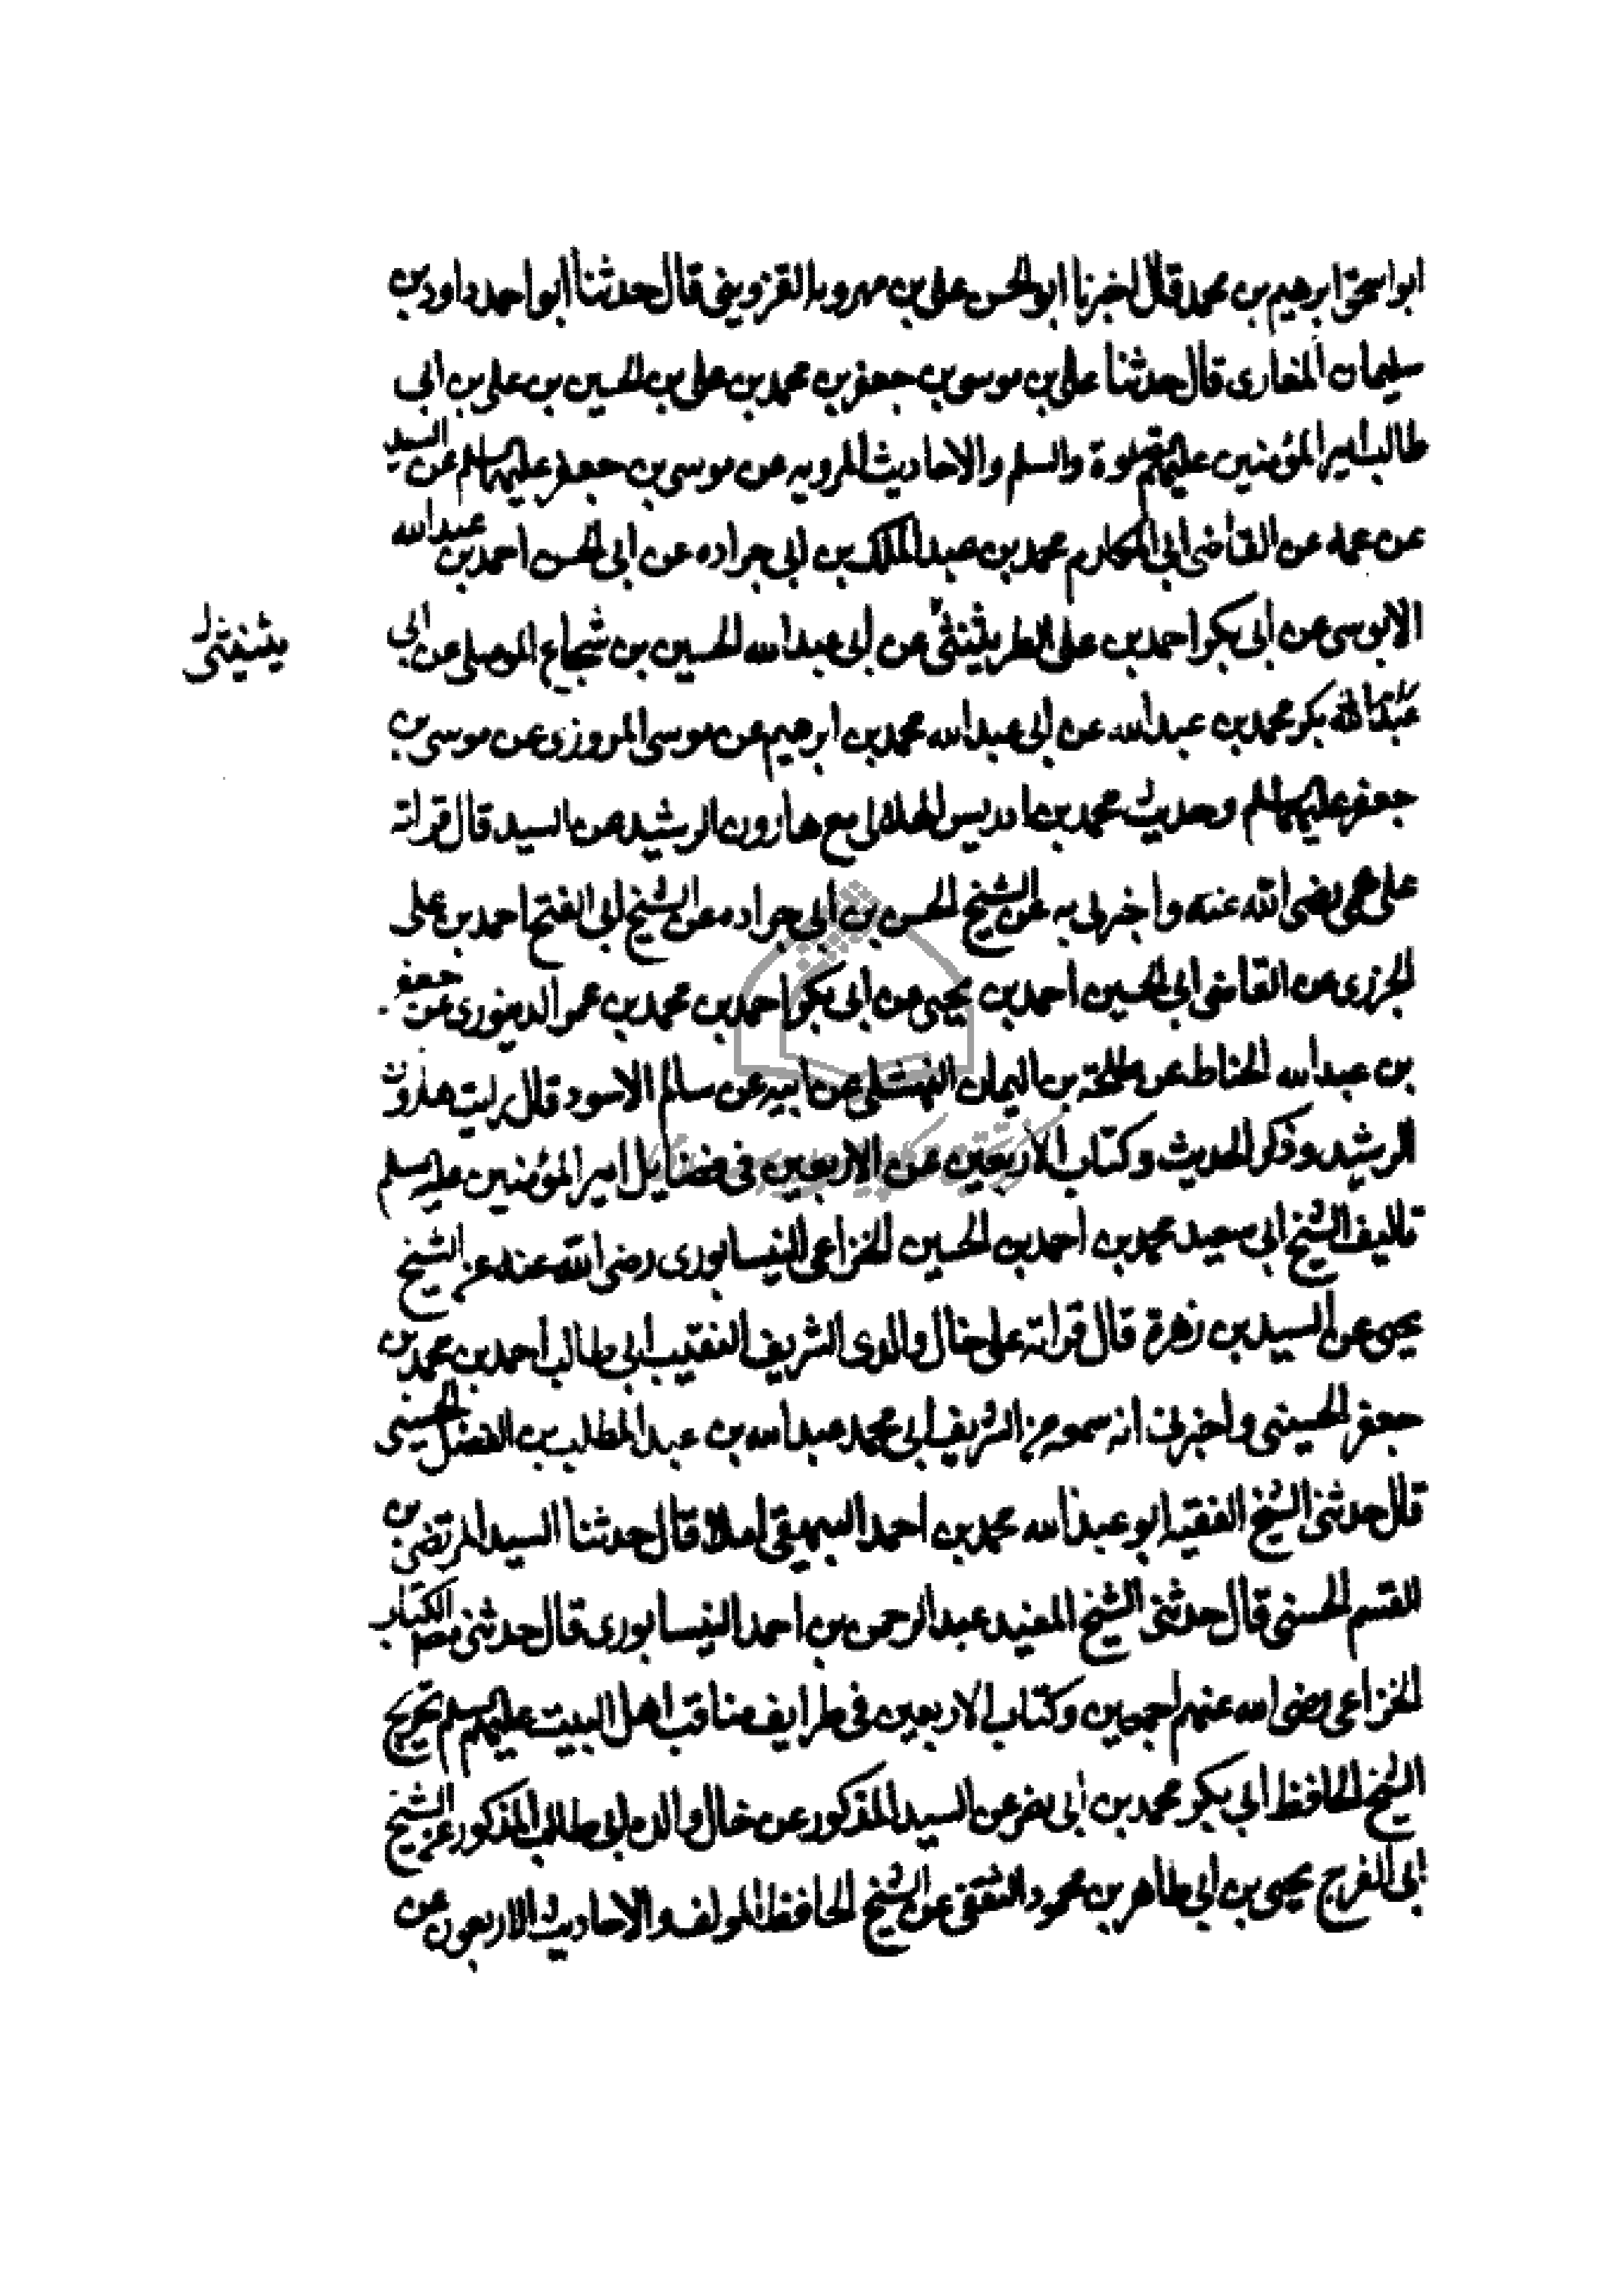 ابو اسحق ابرهيم بن محمد قال اخبرنا ابو الحسن على بن مهرويه القزوينى قال حدثنا ابو احمد داود بن
سليمان المغازى قال حدثنا على بن موسى بن جعفر بن محمد بن على بن الحسين بن على بن ابى
طالب امير المؤمنين عليهم الصلوة والسلم والاحاديث المرويه عن موسى بن جعفر عليهما السلم عن السيد
عن عمه عن القاضى ابى المكارم محمد بن عبد الملك بن ابى جراده عن ابى الحسن احمد بن عبد الله
الابوسى عن ابى بكر احمد بن على الطريثيثى عن ابى عبد الله الحسين بن شجاع الموصلى عن ابى
بكر محمد بن عبد الله عن ابى عبد الله محمد بن ابرهيم عن موسى المروزى عن موسى بن
جعفر عليهما السلم وحديث محمد بن ادريس الهلالى مع هارون الرشيد عن السيد قال قراته
على عمى رضى الله عنه واخبرنى به عن الشيخ الحسن بن ابى جراده عن الشيخ ابى الفتح احمد بن على
الجزرى عن القاضى ابى الحسين احمد بن يحيى عن ابى بكر احمد بن محمد بن عمر الدينورى عن جعفر
بن عبد الله الحناط عن طلحة بن اليمان النهشلى عن ابيه عن سالم الاسود قال رايت هارون
الرشيد وذكر الحديث وكتاب الاربعين عن الاربعين فى فضايل امير المؤمنين عليه السلم
تاليف الشيخ ابى سعيد محمد بن احمد بن الحسين الخزاعى النيسابورى رضى الله عنه عن الشيخ
يحيى عن السيد بن زهرة قال قراته على خال والدى الشريف النقيب ابى طالب احمد بن محمد بن
جعفر الحسينى واخبرنى انه سمعه من الشريف ابى محمد عبد الله بن عبد المطلب بن الفضل الحسينى
قال حدثنى الشيخ الفقيه ابو عبد الله محمد بن احمد البيهقى املاء قال حدثنا السيد المرتضى بن
القسم الحسنى قال حدثنى الشيخ المفيد عبد الرحمن بن احمد النيسابورى قال حدثنى مصنف الكتاب
الخزاعى رضى الله عنهم اجمعين وكتاب الاربعين فى طرايف مناقب اهل البيت عليهم السلم تخريج
الشيخ الحافظ ابى بكر محمد بن ابى نصر عن السيد المذكور عن خال والده ابى طالب المذكور عن الشيخ
ابى الفرج يحيى بن ابى طاهر بن محمود الثقفى عن الشيخ الحافظ المولف والاحاديث الاربعون عن